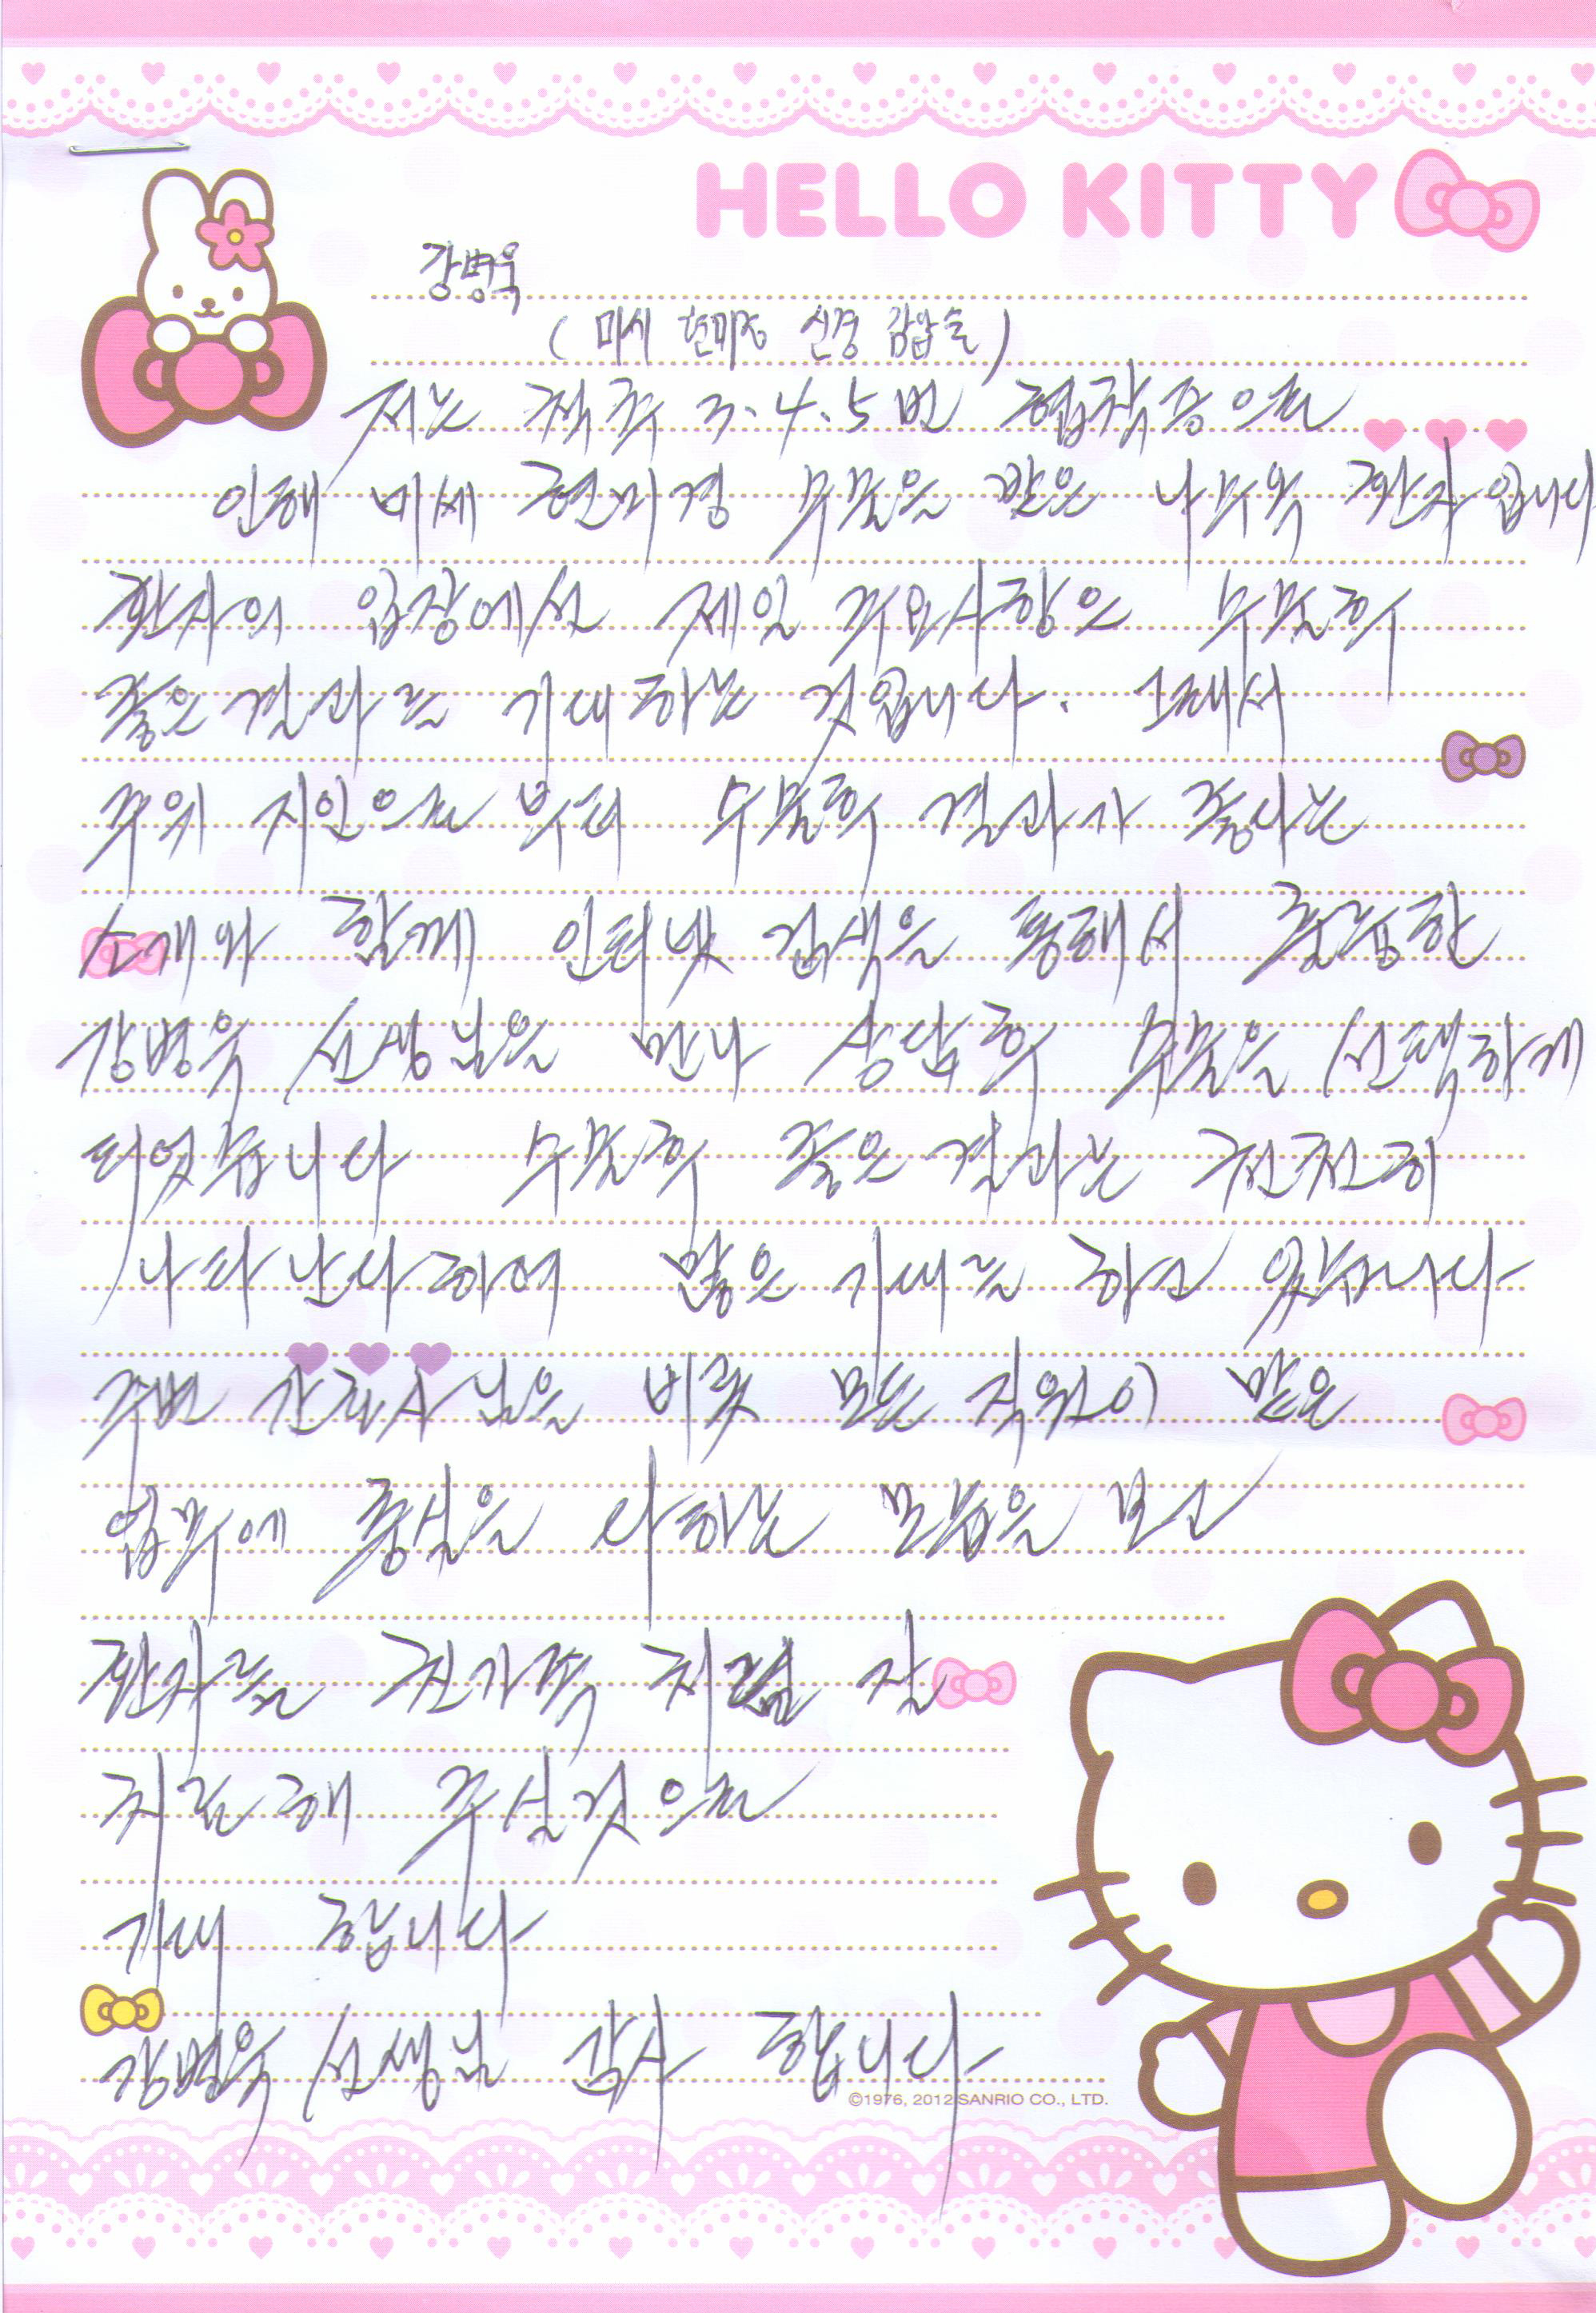 HELLO KITTY
강병욱
(미세 현미경 신경 감압술)
저는 척추 3.4.5번 협착증으로
인해 미세 현미경 수술을 받은 나수옥 환자입니다
환자의 입장에서 제일 주요사항은 수술후
좋은 결과를 기대하는 것입니다. 그래서
주위 지인으로 부터 수술후 결과가 좋다는
소개와 함께 인터넷 검색을 통해서 출중한
강병욱 선생님을 만나 상담후 수술을 선택하게
되었습니다 수술후 좋은 결과는 천천히
나타난다하여 많은 기대를 하고 있습니다
주변 간호사님을 비롯 모든 직원이 맡은
업무에 충실을 다하는 모습을 보고
환자를 친가족 처럼 잘
치료해 주실것으로
기대 합니다
강병욱 선생님 감사 합니다
©1976, 2012 SANRIO CO., LTD.